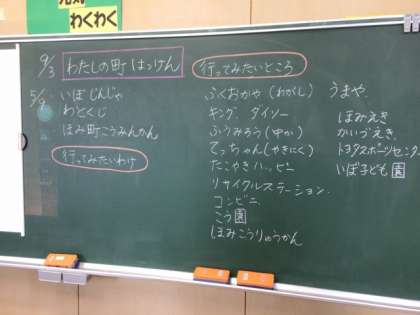 元気
わくわく
9/3 わたしの町 はっけん
5/9
いぼじんじゃ
わとくじ
ほみ町こうみんかん
行ってみたいわけ
行ってみたいところ
ふくおかや(わがし)
キング、ダイソー
ふうみろう(ゆか)
てっちゃん(やきにく)
たこやきハッピー
リサイクルステーション
コンビニ
こう園
ほみこうりゅうかん
うまや
ほみえき
かいづえき
トヨタスポーツセンター
いぼ子ども園